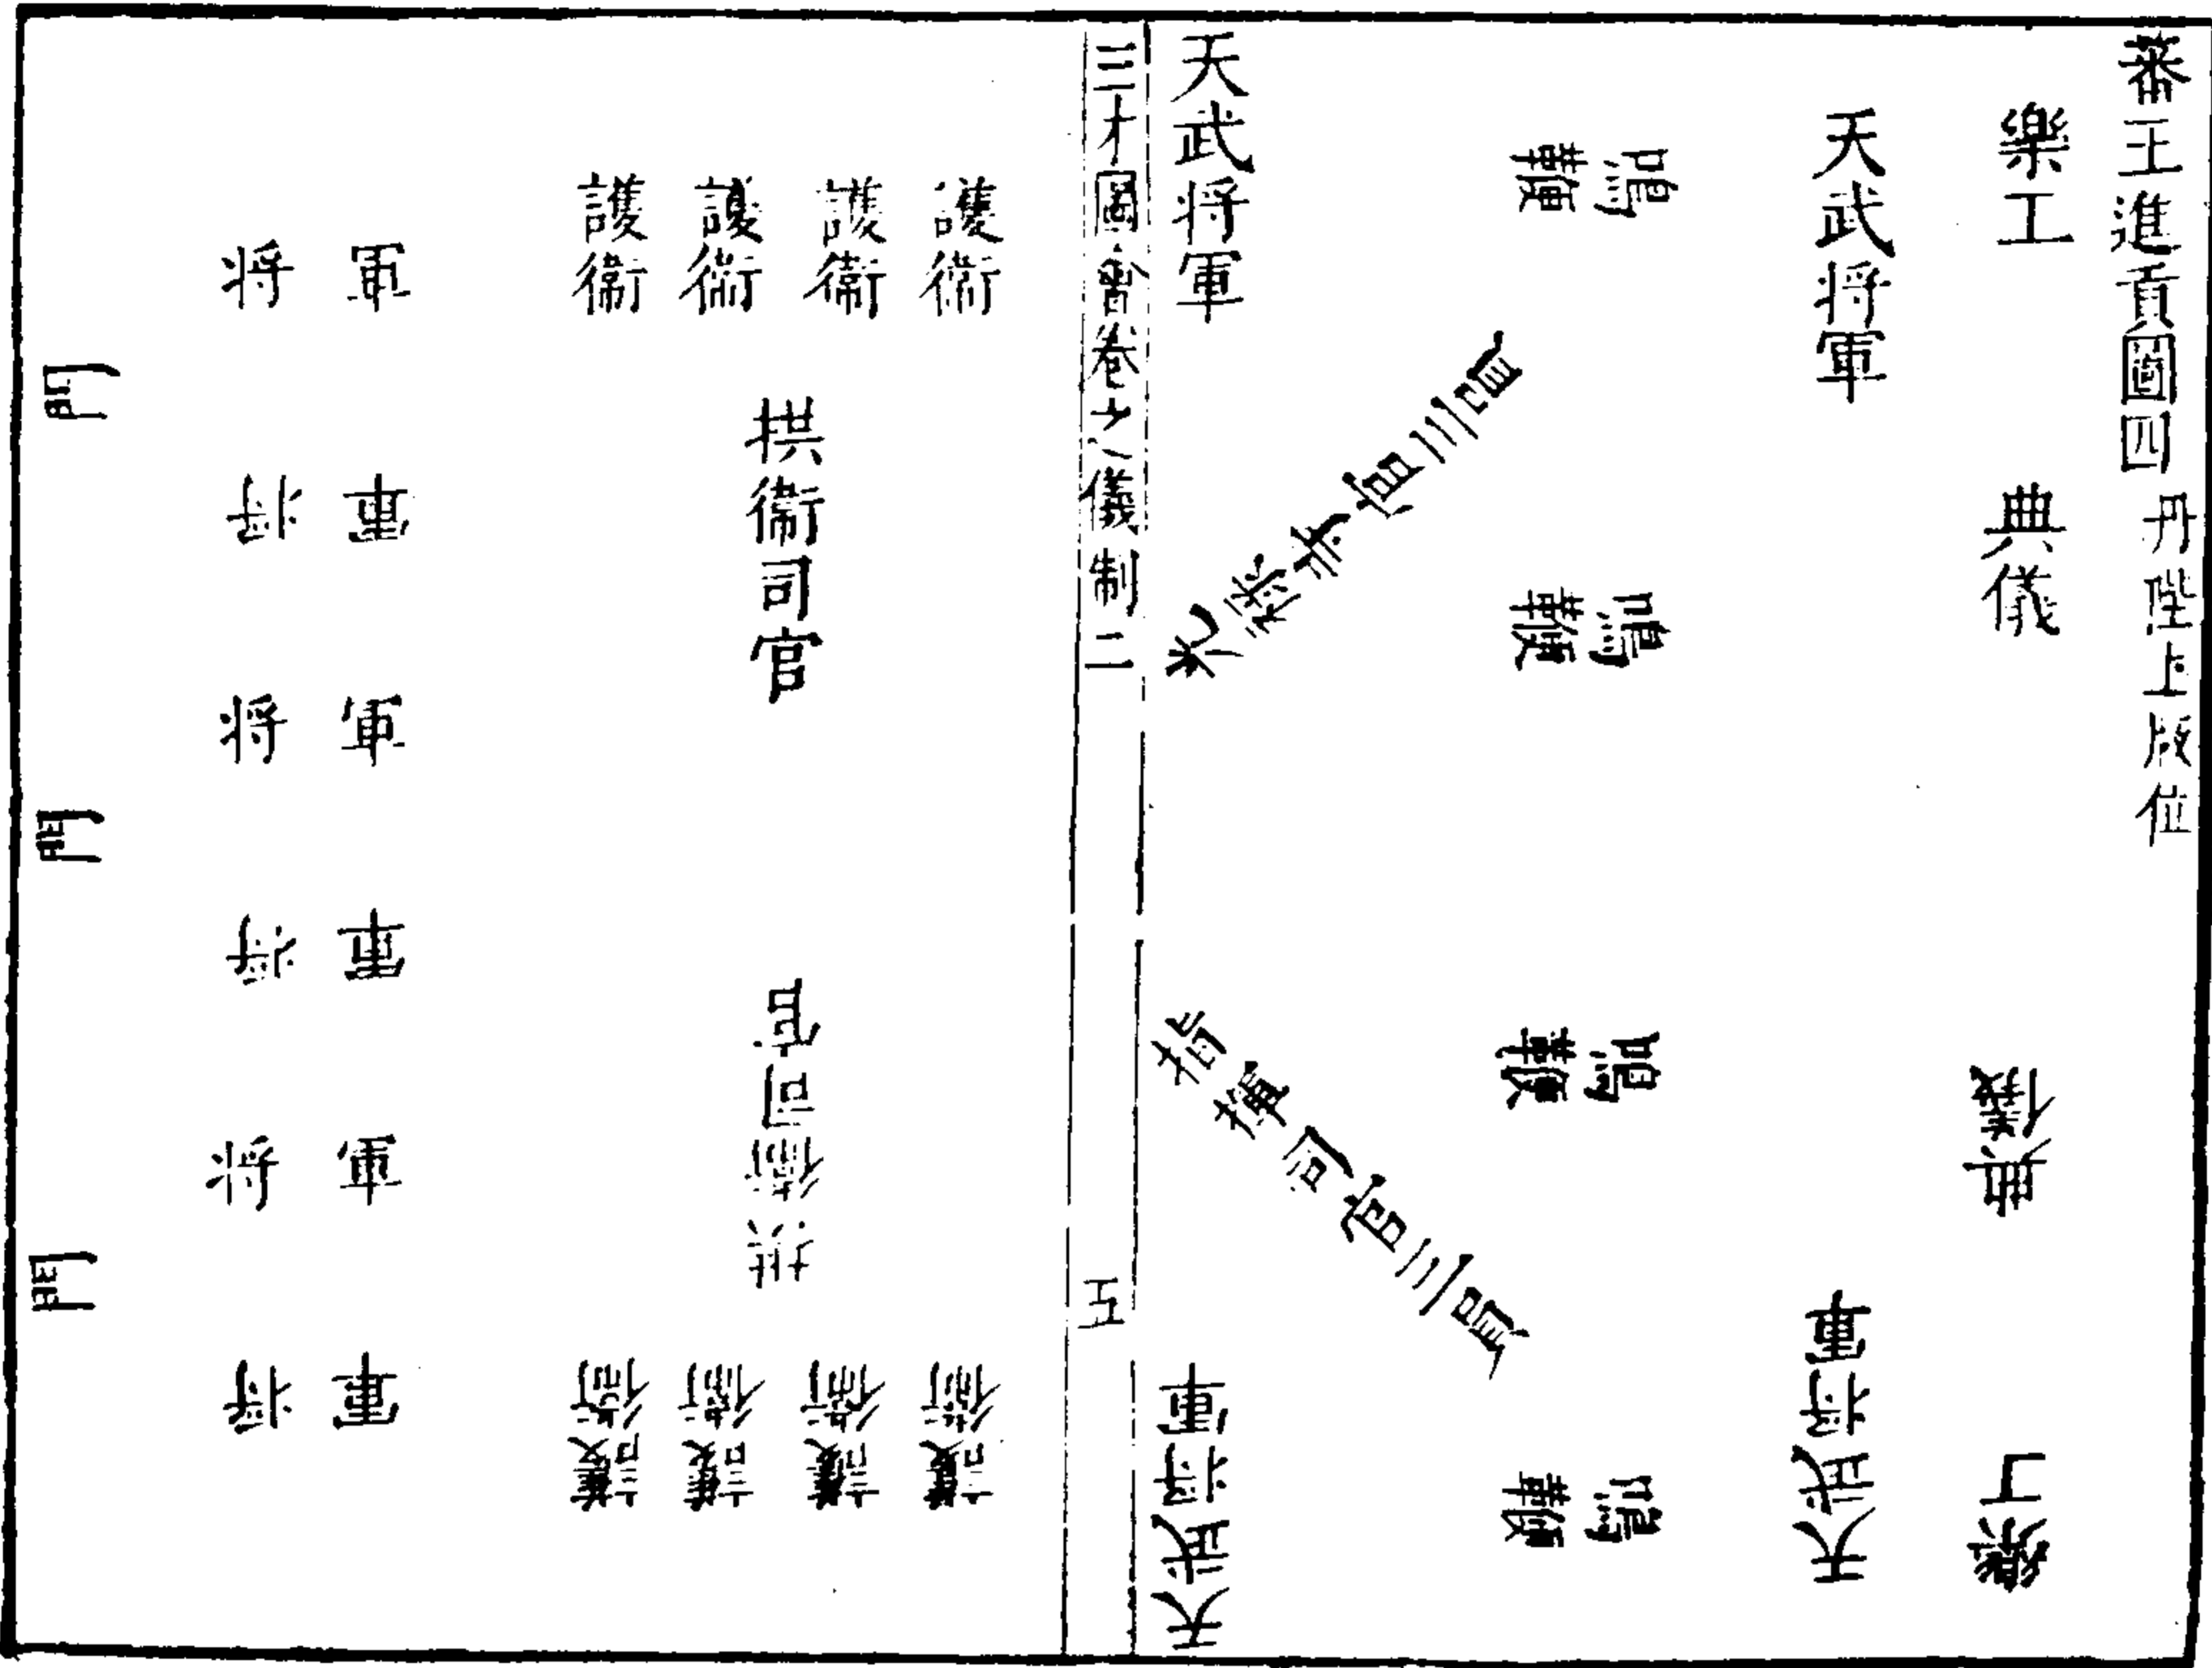 蕃王進貢圖四 丹陛上版位
樂工
典儀
典儀
樂工
天武将軍
天武将軍
鳴鞭
鳴鞭
鳴鞭
鳴鞭
光祿寺官三員
指揮司官三員
天武将軍
天武将軍
三才圖會卷之儀制二 五
護衛
護衛
護衛
護衛
拱衛司官
拱衛司官
護衛
護衛
護衛
護衛
将軍
将軍
将軍
将軍
将軍
将軍
門
門
門